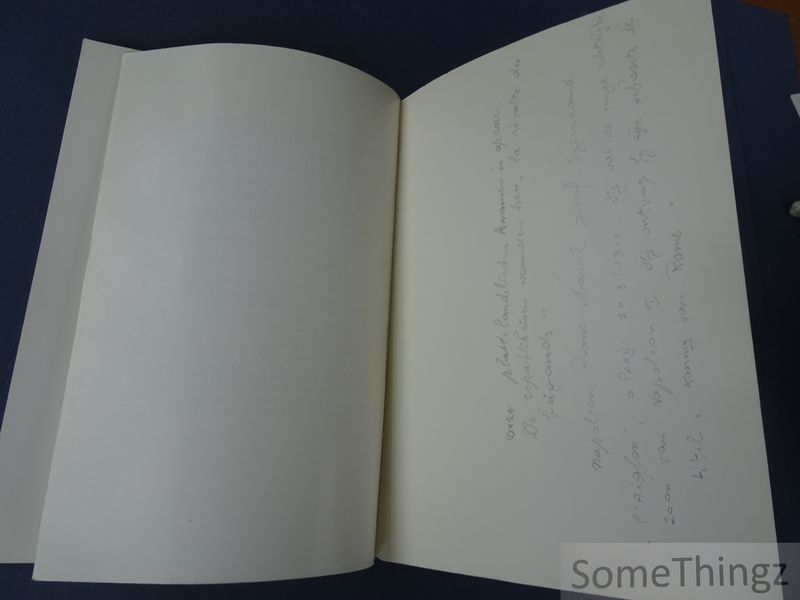 onze plattelandslieden kwamen in opstan-
De republikeinen noemden hen „la révolte des
brigands"
Napoleon Frans Karel Jozef. bijgenaamd
„l'Aiglon", o PARIJS 20/3/1811 Hij was de enige
zoon van Napoleon I. Hij ontving bij zijn geboorte de
titel „ Koning van Rome "
SomeThingz